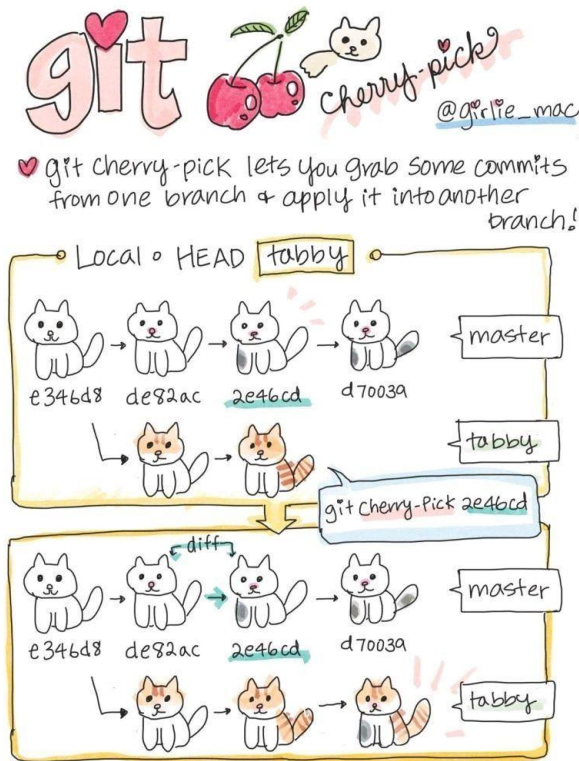 git
cherry-pick
@girlie_mac
git cherry-pick lets you grab some commits
from one branch & apply it into another
branch!
Local HEAD tabby
master
e346d8 de82ac 2e46cd d7003a
tabby
git cherry-pick 2e46cd
diff
master
e346d8 de82ac 2e46cd d7003a
tabby